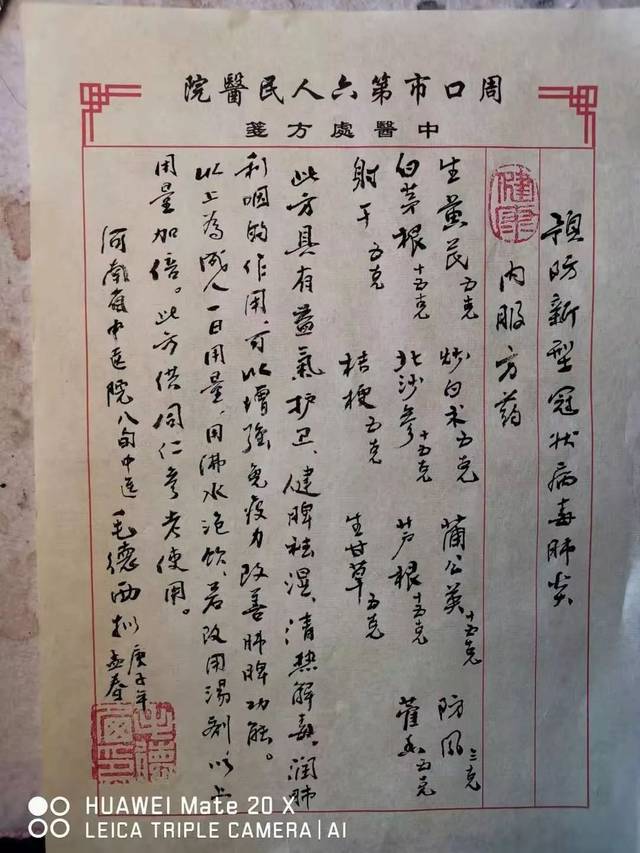 周口市第六人民醫院
中醫處方箋
預防新型冠狀病毒肺炎
健康
内服方药
生黄芪五克 炒白术五克 蒲公英十五克 防風三克
白茅根十五克 北沙参十五克 芦根十五克 藿香五克
射干五克 桔梗五克 生甘草五克
此方具有益氣护卫、健脾祛湿、清热解毒、润肺
利咽的作用,可以增強免疫力改善肺脾功能。
以上為成人一日用量,用沸水泡饮,若改用湯剂以上
用量加倍。此方供同仁参考使用。
河南省中医院八旬中医毛德西拟
庚子年
孟春
HUAWEI Mate 20 X
LEICA TRIPLE CAMERA | AI